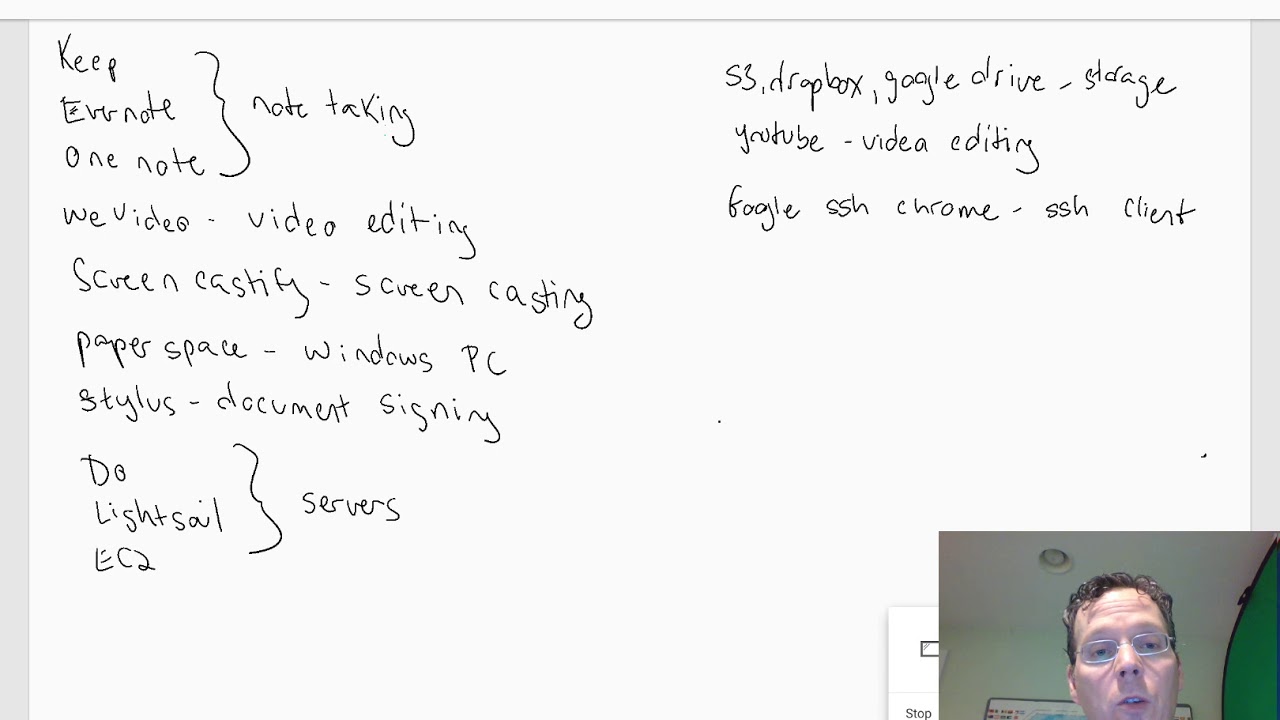 Keep
Evernote
One note
note taking
we video - video editing
Screen castify - screen casting
paper space - windows PC
stylus - document signing
Do
Lightsail
EC2
servers
S3, dropbox, google drive - storage
youtube - video editing
Google ssh chrome - ssh client
Stop